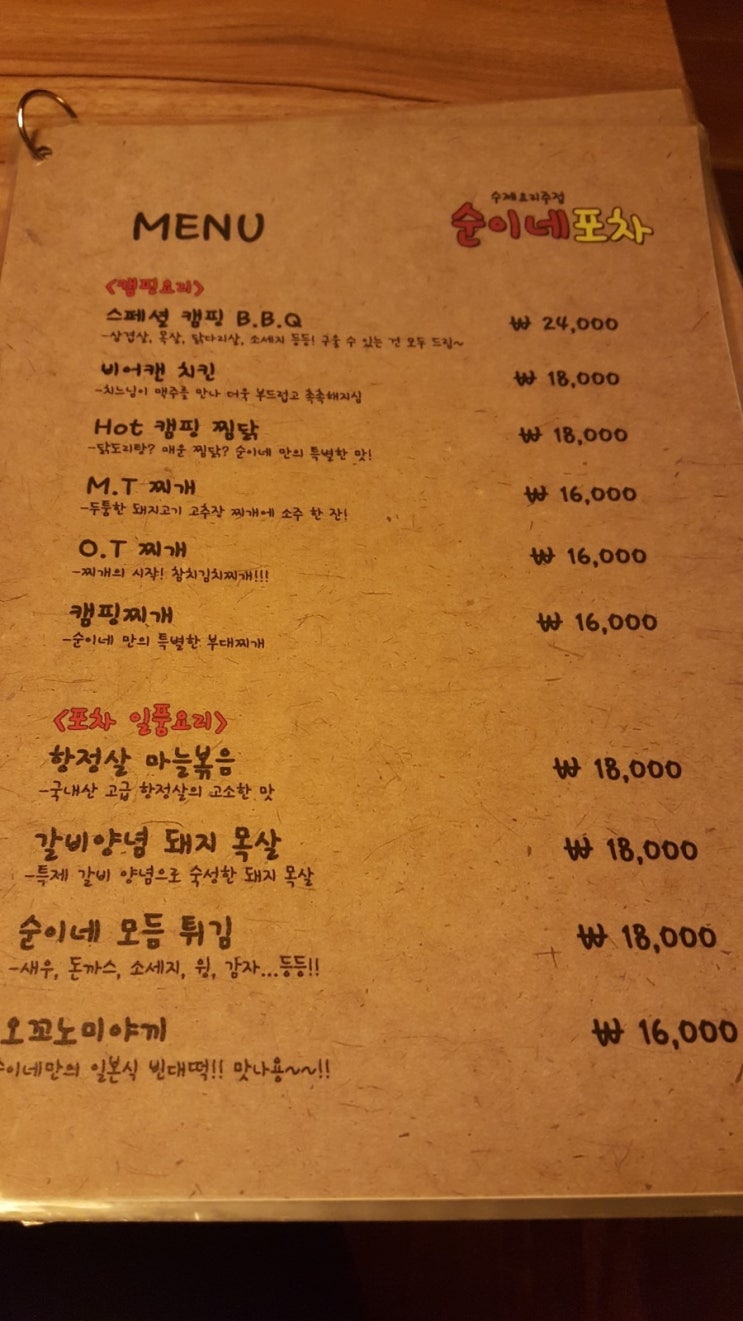 MENU
수제요리주점
순이네포차
<캠핑요리>
스페셜 캠핑 B.B.Q ₩ 24,000
-삼겹살, 목살, 닭다리살, 소세지 등등! 구울 수 있는 건 모두 드림~
비어캔 치킨 ₩ 18,000
-치느님이 맥주를 만나 더욱 부드럽고 촉촉해지심
Hot 캠핑 찜닭 ₩ 18,000
-닭도리탕? 매운 찜닭? 순이네 만의 특별한 맛!
M.T 찌개 ₩ 16,000
-두툼한 돼지고기 고추장 찌개에 소주 한 잔!
O.T 찌개 ₩ 16,000
-찌개의 시작! 참치김치찌개!!!
캠핑찌개 ₩ 16,000
-순이네 만의 특별한 부대찌개
<포차 일품요리>
항정살 마늘볶음 ₩ 18,000
-국내산 고급 항정살의 고소한 맛
갈비양념 돼지 목살 ₩ 18,000
-특제 갈비 양념으로 숙성한 돼지 목살
순이네 모듬 튀김 ₩ 18,000
-새우, 돈까스, 소세지, 윙, 감자...등등!!
오꼬노미야끼 ₩ 16,000
순이네만의 일본식 빈대떡!! 맛나용~~!!